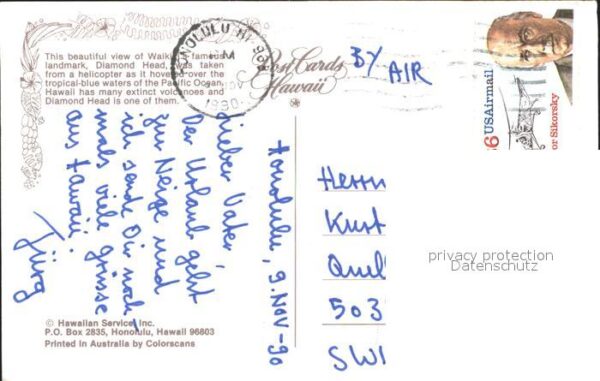 This beautiful view of Waikiki's famous
landmark, Diamond Head, was taken
from a helicopter as it hovered over the
tropical-blue waters of the Pacific Ocean.
Hawaii has many extinct volcanoes and
Diamond Head is one of them.
HONOLULU HI 968
PM
NOV
1990
Post Cards
Hawaii
BY
AIR
USAirmail
or Sikorsky
Honolulu, 9. Nov-90
Lieber Vater,
Der Urlaub geht
zur Neige und
ich sende Dir noch-
mals viele grüsse
aus Hawaii.
Jürg
Herrn
Kurt
Quel
503
SWI
privacy protection
Datenschutz
© Hawaiian Service, Inc.
P.O. Box 2835, Honolulu, Hawaii 96803
Printed in Australia by Colorscans